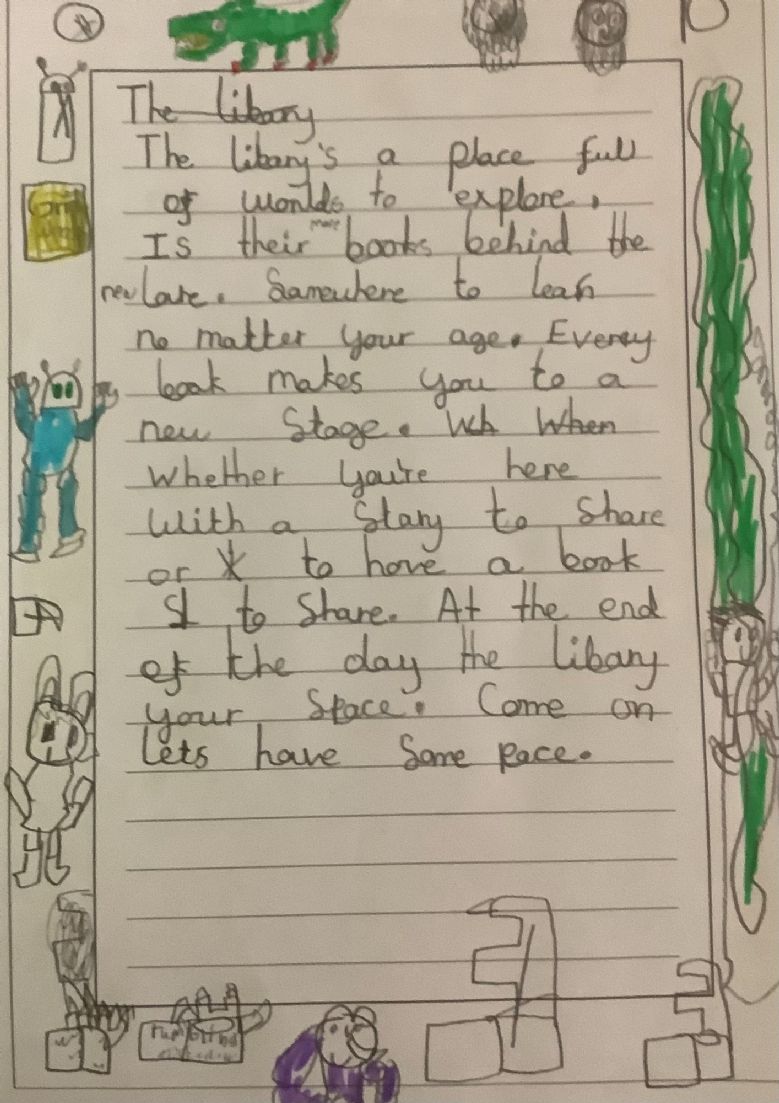 The libary
The libary's a place full
of worlds to explore.
Is their more books behind the
new lare. Somewhere to leah
no matter your age. Everey
book makes you to a
new Stage. Wh When
whether you're here
with a Story to share
or to have a book
to share. At the end
of the day the libary
your Space. Come on
lets have Some pace.